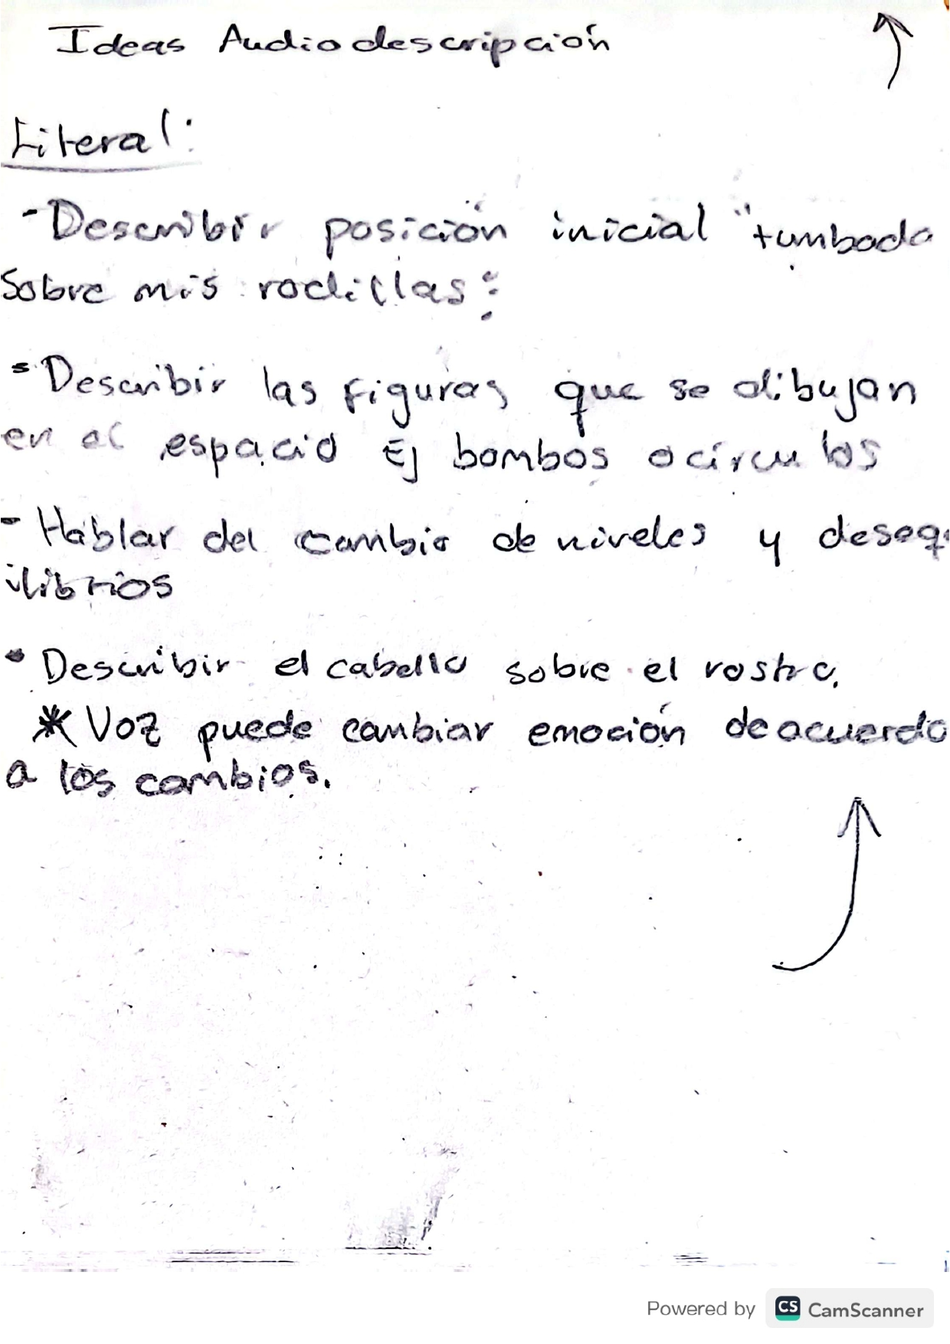 Ideas Audiodescripción
Literal:
- Describir posición inicial "tumbada
sobre mis rodillas:
- Describir las figuras que se dibujan
en el espacio Ej bombos o círculos
- Hablar del cambio de niveles y deseq
uilibrios
- Describir el cabello sobre el rostro.
* Voz puede cambiar emoción de acuerdo
a los cambios.
Powered by CS CamScanner